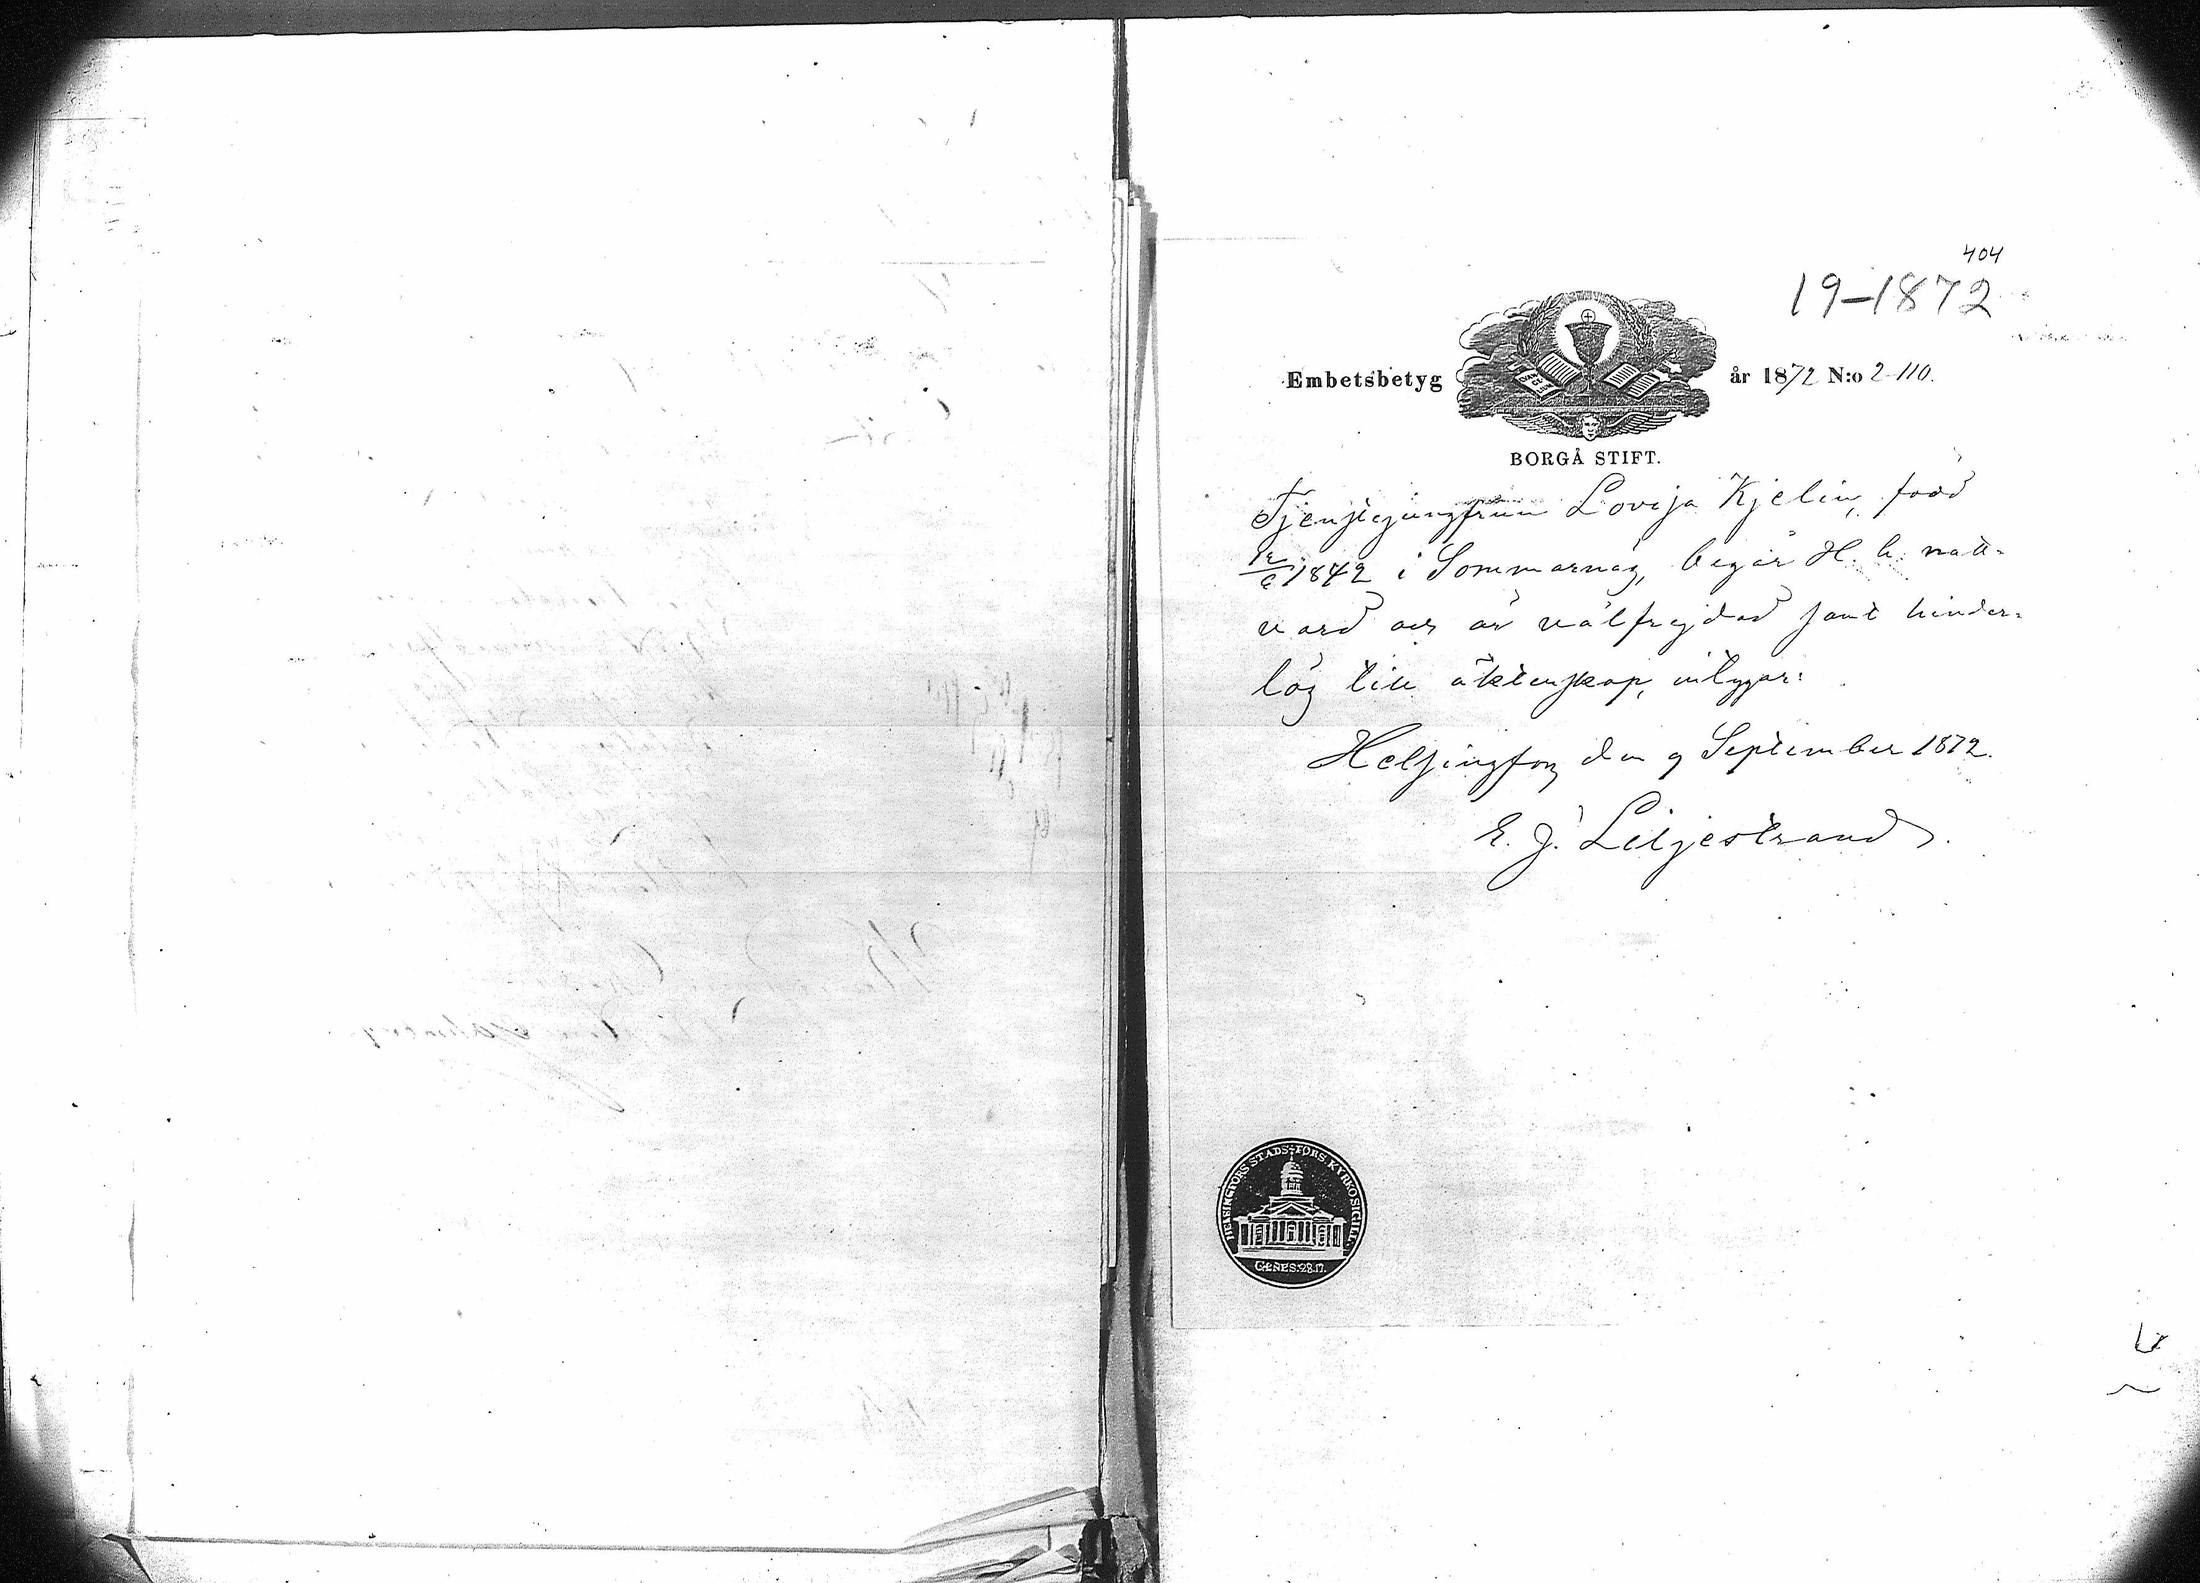 404
19-1872
Embetsbetyg år 1872 N:o 2-110.
BORGÅ STIFT.
Tjenstejungfrun Lovisa Kjelin, född
1842 i Sommarnäs, begår H. h. natt-
vard och är välfrejdad samt hinder-
lös till äktenskap, intygar:
Helsingfors den 9 September 1872.
E. J. Liljestrand.
HELSINGFORS STADS-FÖRS. KYRKOSIGILL.
GENES: 28.17.